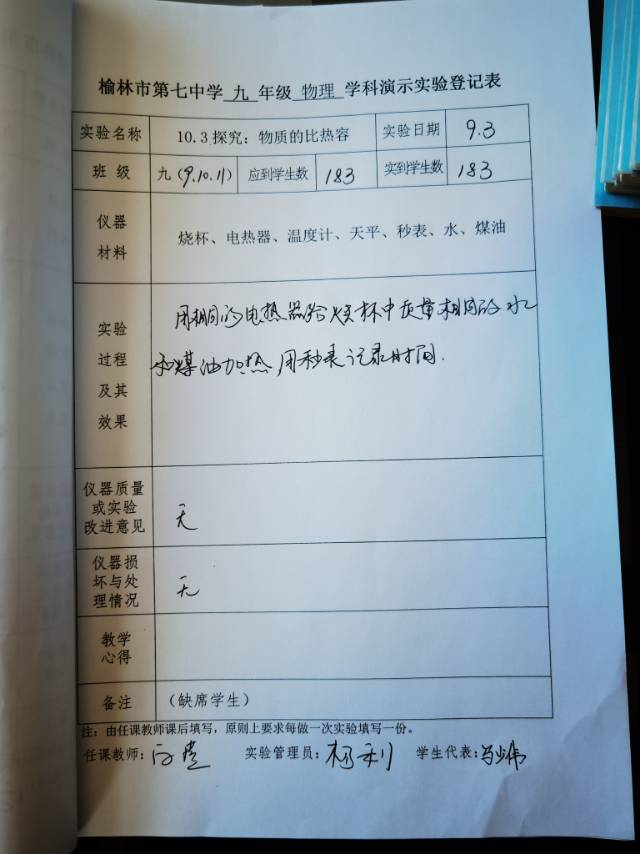 榆林市第七中学 九 年级 物理 学科演示实验登记表
实验名称 10.3 探究：物质的比热容 实验日期 9.3
班 级 九（9.10.11） 应到学生数 183 实到学生数 183
仪器
材料
烧杯、电热器、温度计、天平、秒表、水、煤油
实验
过程
及其
效果
用相同的电热器给烧杯中质量相同的水
和煤油加热 用秒表记录时间.
仪器质量
或实验
改进意见
无
仪器损
坏与处
理情况
无
教学
心得
备注 （缺席学生）
注：由任课教师课后填写，原则上要求每做一次实验填写一份。
任课教师： 实验管理员：杨利 学生代表：